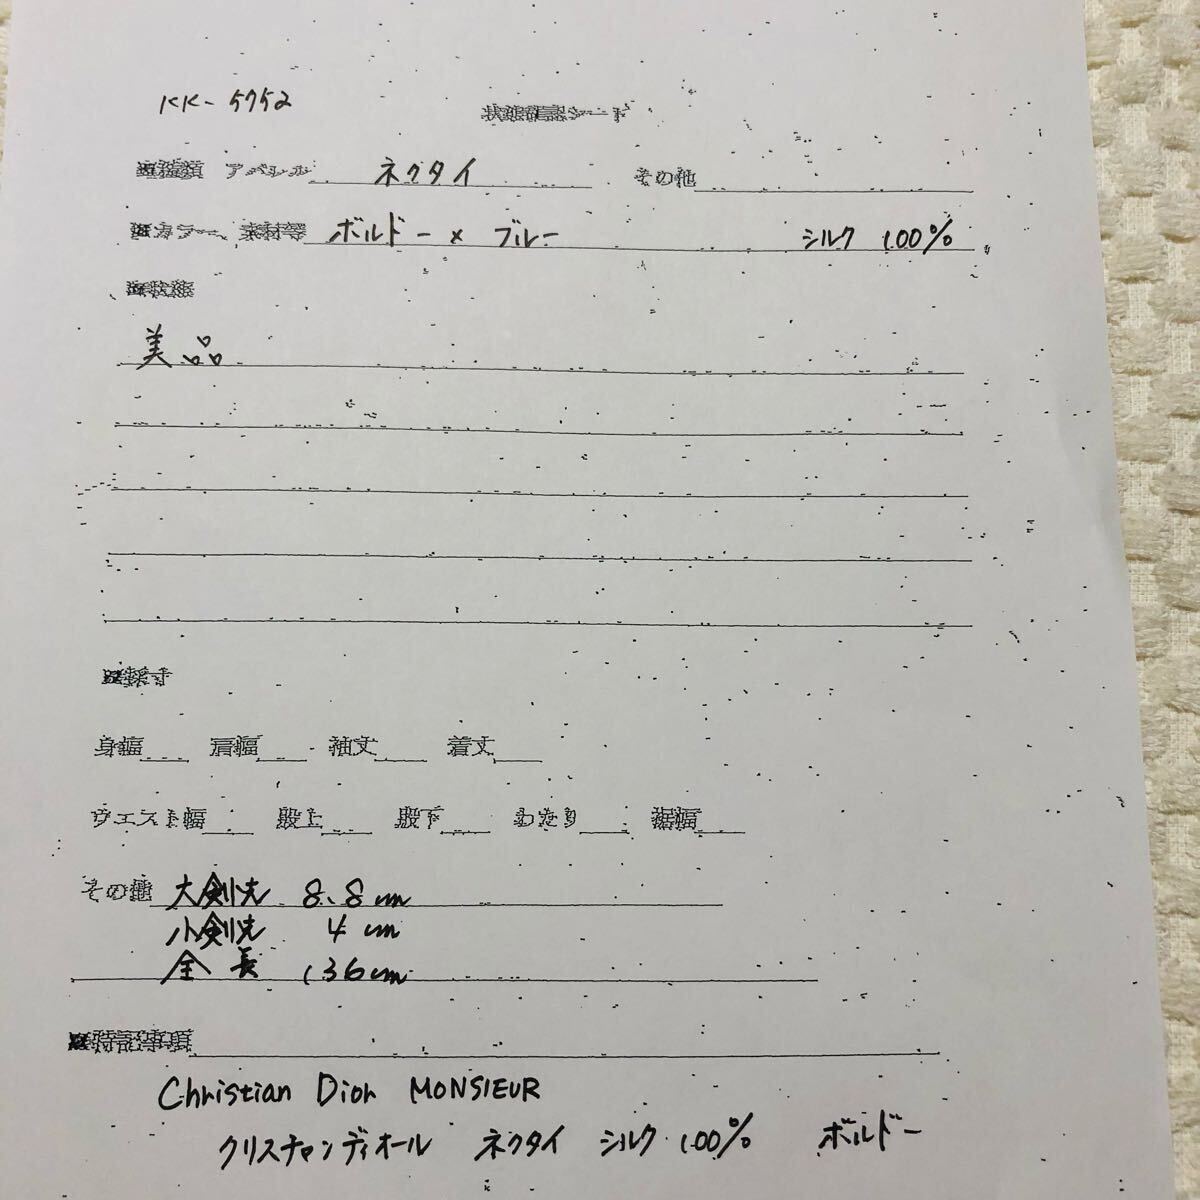 KK-5752
状態確認シート
■種類 アパレル ネクタイ その他
■カラー、素材等 ボルドー × ブルー シルク 100%
■状態
美品
■採寸
身幅 肩幅 袖丈 着丈
ウエスト幅 股上 股下 わたり 裾幅
その他 大剣先 8.8cm
小剣先 4cm
全長 136cm
■特記事項
Christian Dior MONSIEUR
クリスチャンディオール ネクタイ シルク 100% ボルドー